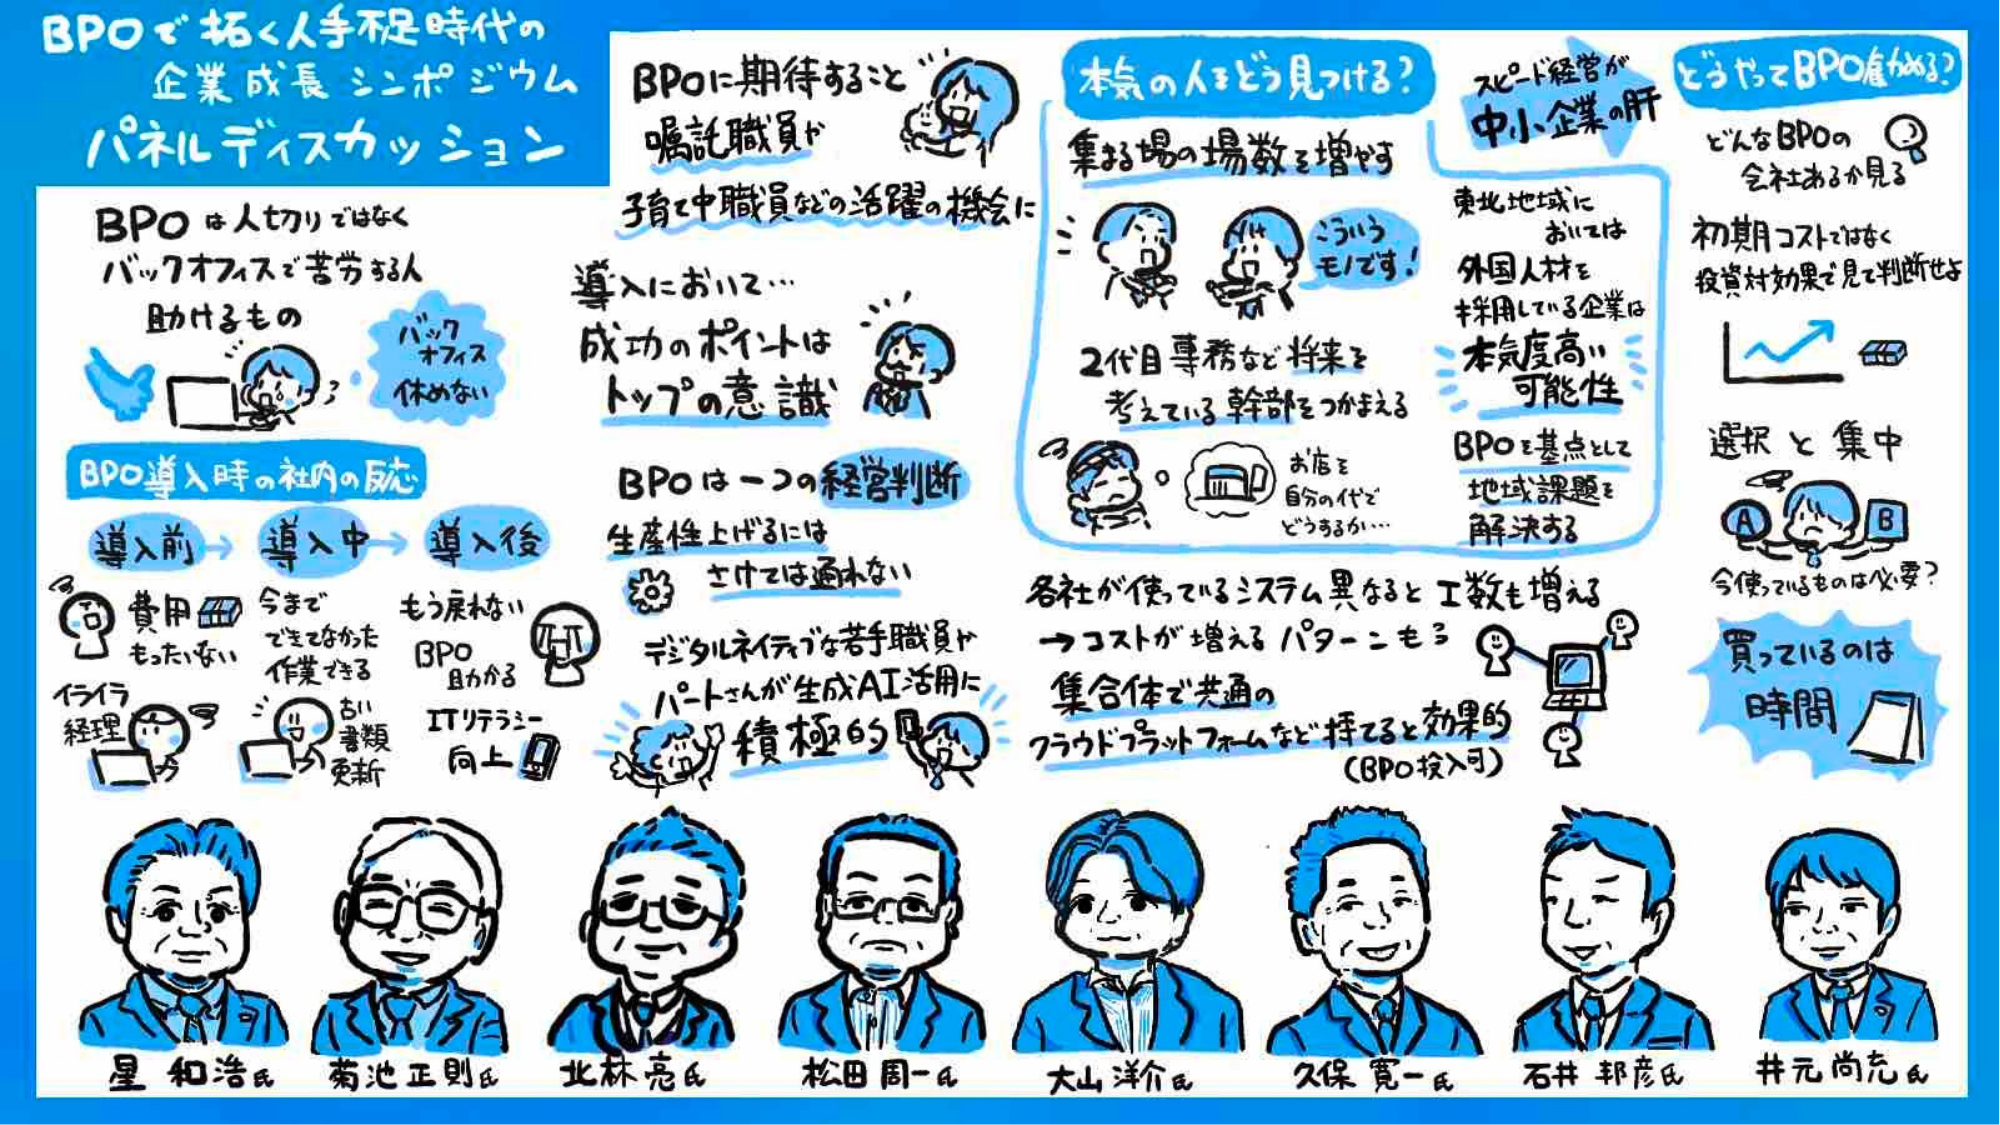 BPOで拓く人手不足時代の
企業成長シンポジウム
パネルディスカッション
BPOは人切りではなく
バックオフィスで苦労する人
助けるもの
バック
オフィス
休めない
BPO導入時の社内の反応
導入前→導入中→導入後
費用
もったいない
イライラ
経理
今まで
できてなかった
作業できる
古い
書類
更新
もう戻れない
BPO
助かる
ITリテラシー
向上
BPOに期待すること
嘱託職員や
子育て中職員などの活躍の機会に
導入において…
成功のポイントは
トップの意識
BPOは一つの経営判断
生産性上げるには
さけては通れない
デジタルネイティブな若手職員や
パートさんが生成AI活用に
積極的
本気の人をどう見つける?
集まる場の場数を増やす
こういう
モノです!
2代目専務など将来を
考えている幹部をつかまえる
お店を
自分の代で
どうするか…
スピード経営が
中小企業の肝
東北地域に
おいては
外国人材を
採用している企業は
本気度高い
可能性
BPOを基点として
地域課題を
解決する
各社が使っているシステム異なると工数も増える
→コストが増えるパターンもある
集合体で共通の
クラウドプラットフォームなど持てると効果的
(BPO投入可)
どうやってBPO進める?
どんなBPOの
会社あるか見る
初期コストではなく
投資対効果で見て判断せよ
選択と集中
A
B
今使っているものは必要?
買っているのは
時間
星 和浩氏
菊池正則氏
北林亮氏
松田周一氏
大山洋介氏
久保寛一氏
石井邦彦氏
井元尚充氏